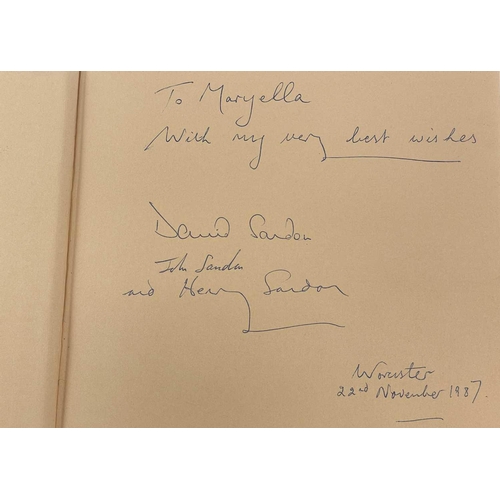 To Maryella
With my very best wishes
David Sandon
John Sandon
and Henry Sandon
Worcester
22nd November 1987.